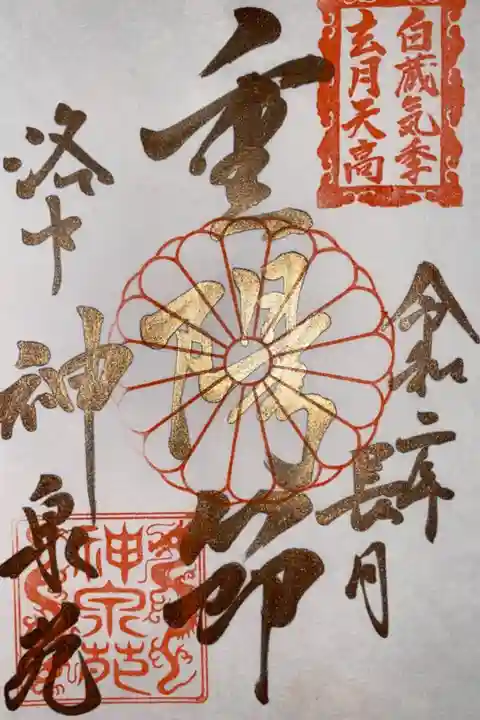 白蔵気季
玄月天高
令和二年
長月
重陽節
洛中
神泉苑
神泉苑